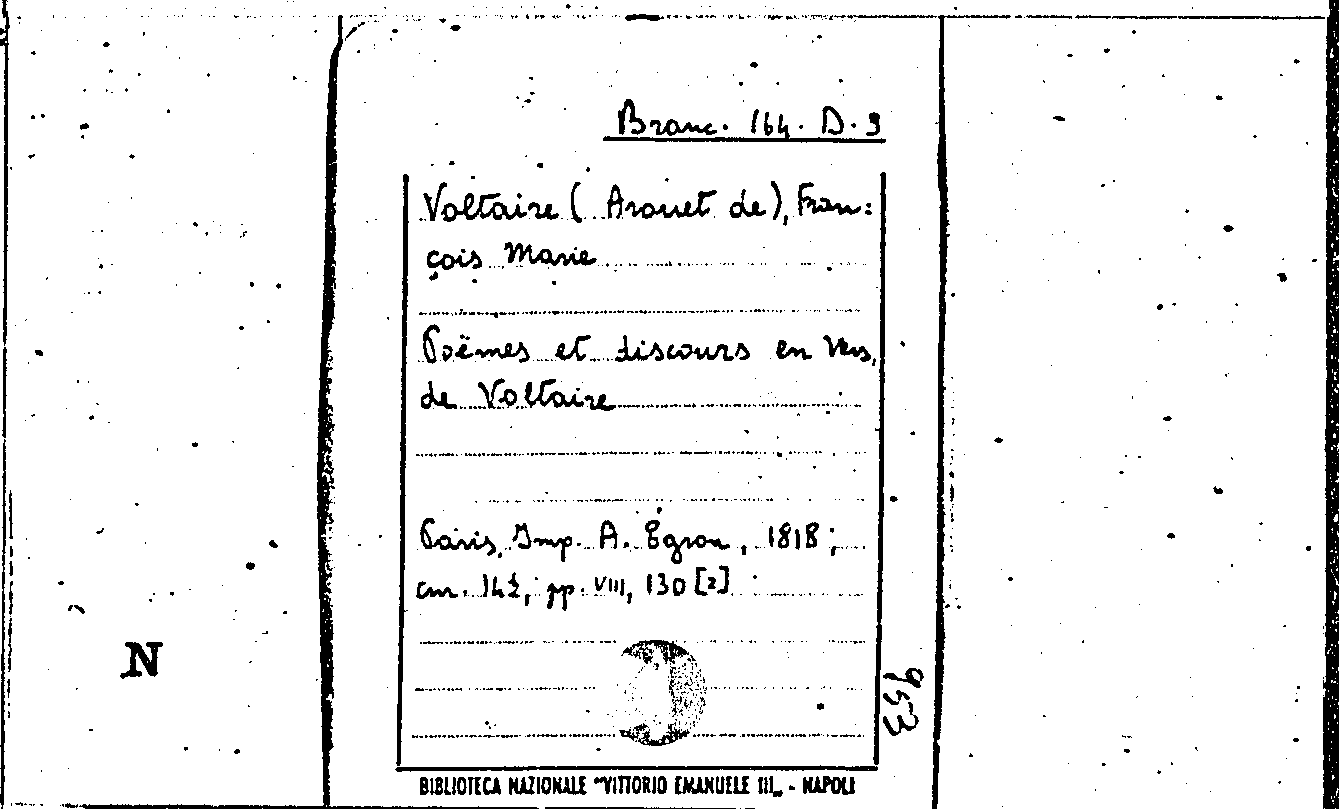 Branc. 164. D. 9
Voltaire ( Arouet de), Fran:
çois Marie
Poëmes et discours en vers,
de Voltaire
Paris, Imp. A. Égron, 1818;
cm. 14½; pp. VIII, 130 [2]
N
953
BIBLIOTECA NAZIONALE "VITTORIO EMANUELE III„ - NAPOLI